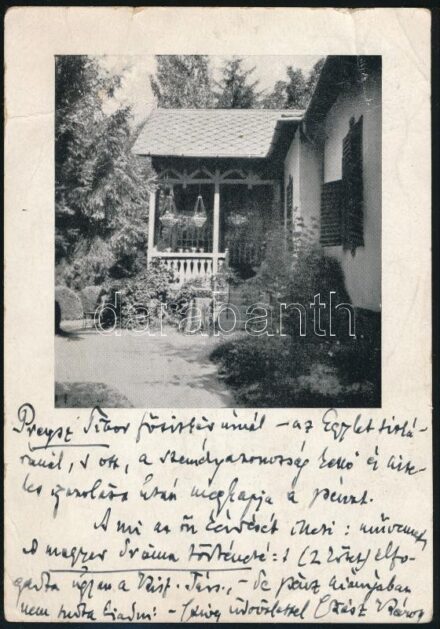 darabanth
Preysz Tibor főtitkár úrnál – az Egylet titká-
ránál, s ott, a személyazonosság kellő és hite-
les igazolása után megkapja a pénzt.
A mi az ön kérdését illeti: művemet,
A magyar dráma történetét (2 kötet) elfo-
gadta ugyan a Kisf. Társ., – de pénz hiányában
nem tudta kiadni. – Szíves üdvözlettel Szász Károly